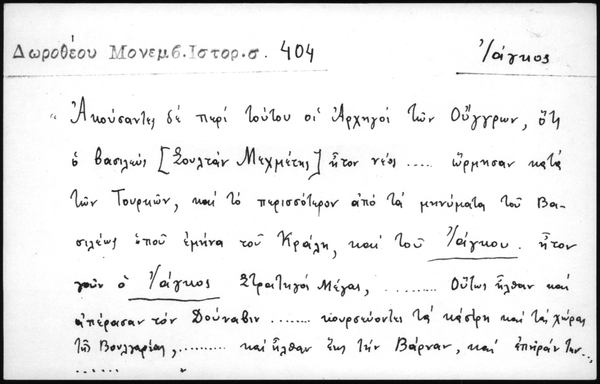 Δωροθέου Μονεμβ. Ιστορ. σ. 404 Ἰάγκος
"Ἀκούσαντες δὲ περὶ τούτου οἱ Ἀρχηγοὶ τῶν Οὔγγρων, ὅτι
ὁ βασιλεὺς [Σουλτὰν Μεχμέτης] ἦτον νέος ..... ὥρμησαν κατὰ
τῶν Τουρκῶν, καὶ τὸ περισσότερον ἀπὸ τὰ μηνύματα τοῦ Βα-
σιλέως ὁποῦ ἐμήνα τοῦ Κράλη, καὶ τοῦ Ἰάγκου. ἦτον
γοῦν ὁ Ἰάγκος Στρατηγὸς Μέγας, ......... Οὕτως ἦλθαν καὶ
ἀπέρασαν τὸν Δούναβιν ........ κουρσεύοντες τὰ κάστρη καὶ τὰς χώρας
τῆς Βουλγαρίας, .......... καὶ ἦλθαν ἕως τὴν Βάρναν, καὶ ἐπῆραν την...,
......